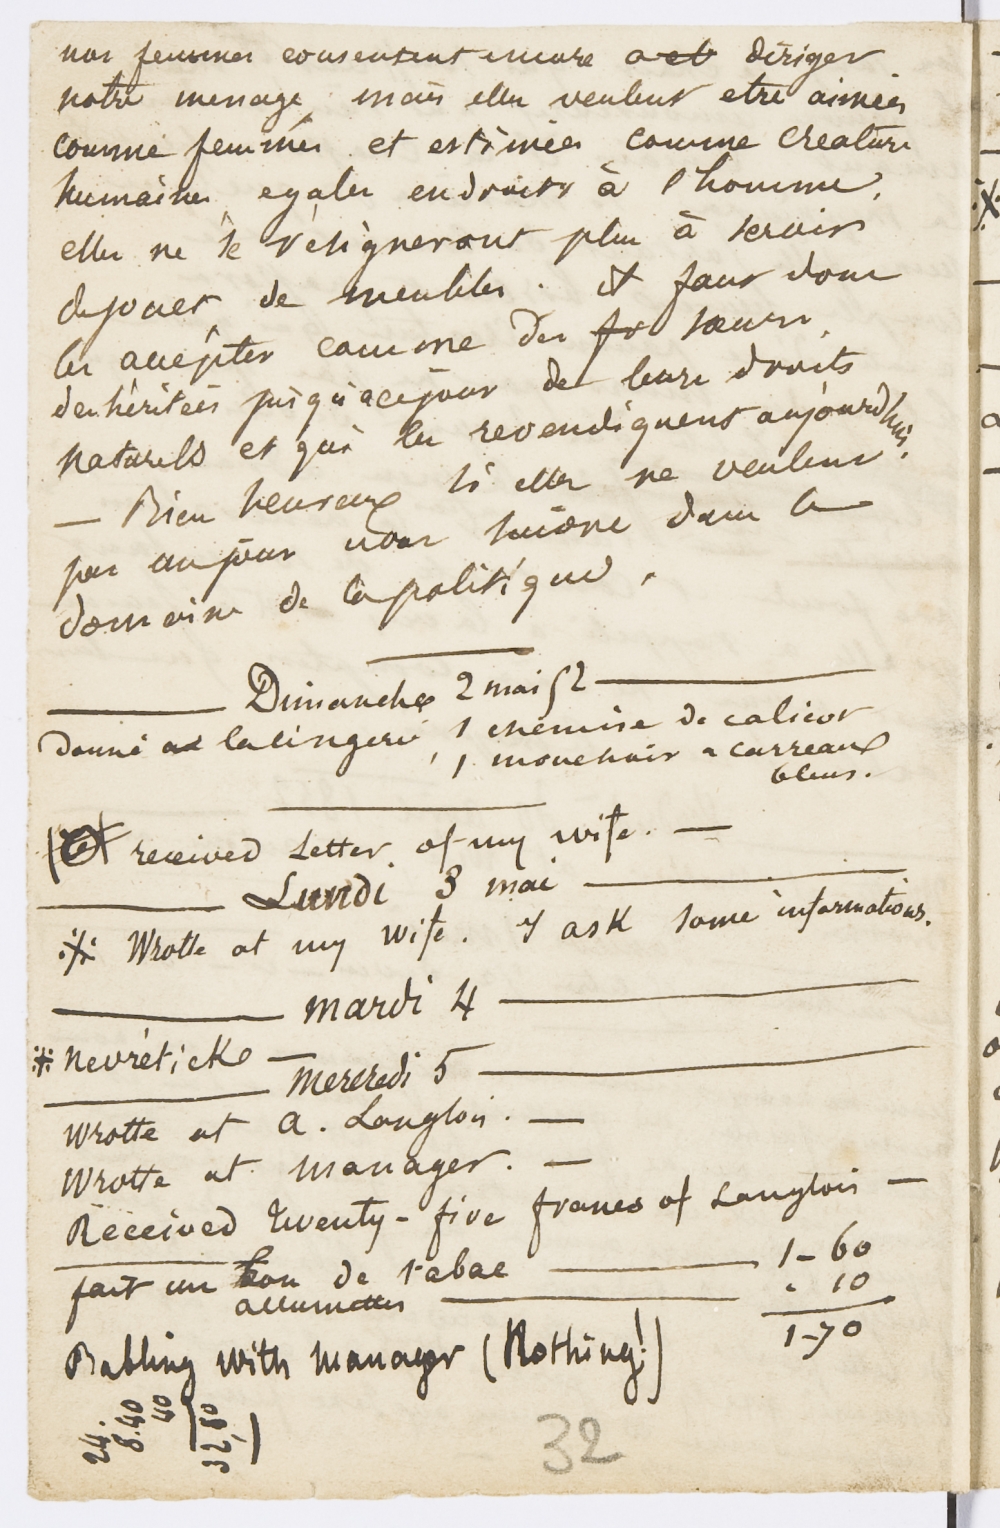 nos femmes consentent encore a et diriger
notre menage, mais elles veulent etre aimées
comme femmes et estimées comme creature
humaines egales en droits à l'homme,
elles ne se résigneront plus à servir
de jouet de meubles. Il faut donc
les accépter comme des fr soeurs,
desheritées jusqu'à ce jour de leurs droits
naturels et qui les revendiquent aujourdhui.
— Bien heureux si elles ne veulent
pas un jour nous suivre dans le
domaine de la politique.
Dimanche 2 mai 52
donné a la lingerie, 1 chemise de calicot
, 1 mouchoir a carreaux
bleus.
received Letter of my wife. —
Lundi 3 mai
Wrotte at my wife. I ask some informations.
mardi 4
nevrétick —
mercredi 5
Wrotte at A. Langlois. —
Wrotte at manager. —
Received twenty-five francs of Langlois —
fait un bon de tabac 1-60
allumettes . 10
1-70
Babling with manager (Nothing!)
24.
8.40
40
32,80
32